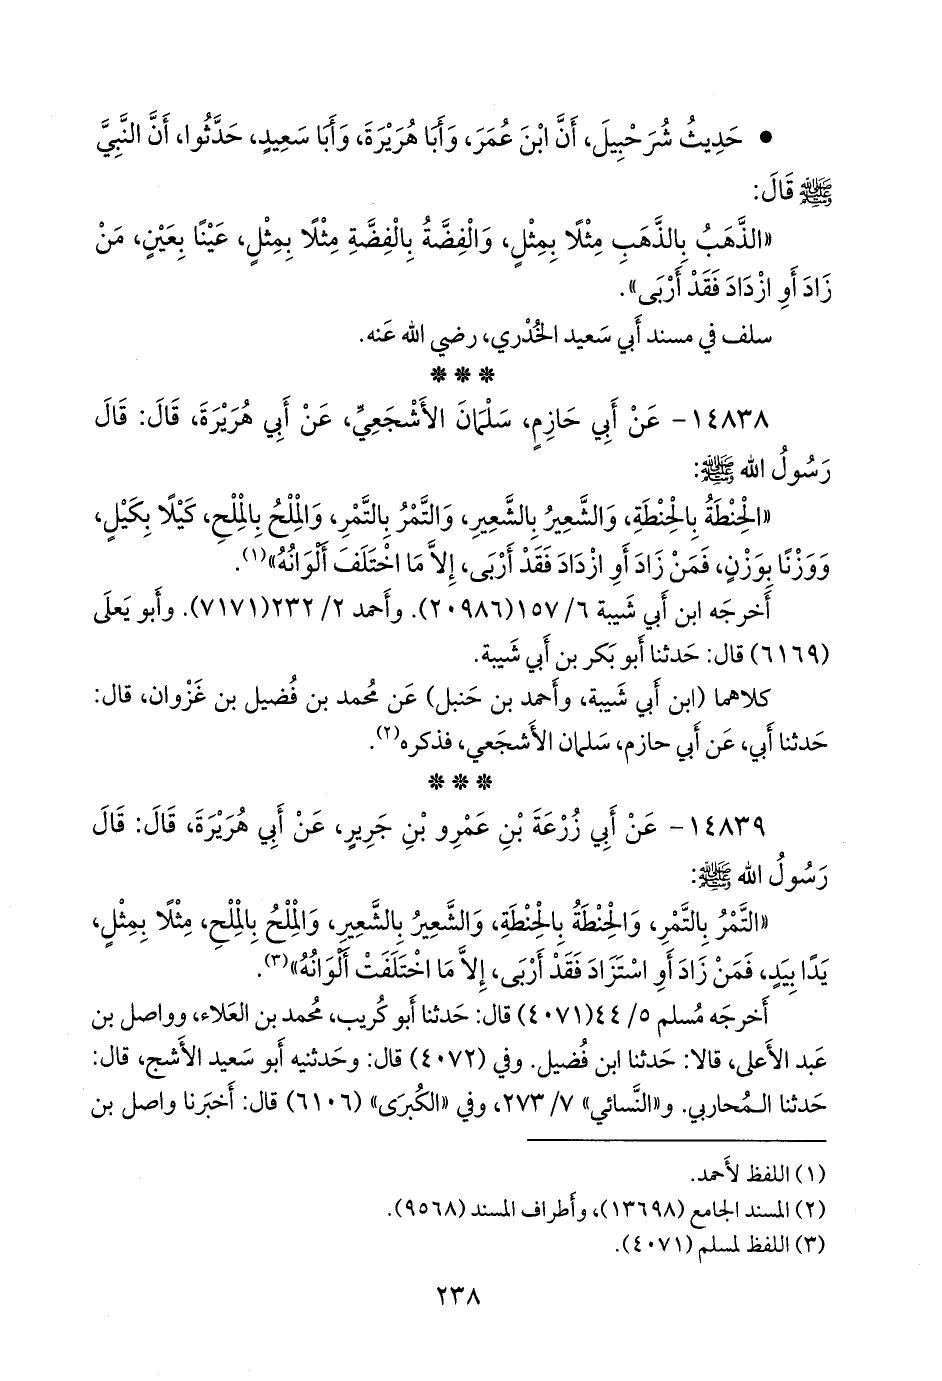 • حَدِيثُ شُرَحْبِيلَ، أَنَّ ابْنَ عُمَرَ، وَأَبَا هُرَيْرَةَ، وَأَبَا سَعِيدٍ، حَدَّثُوا، أَنَّ النَّبِيَّ
ﷺ قَالَ:
«الذَّهَبُ بِالذَّهَبِ مِثْلًا بِمِثْلٍ، وَالْفِضَّةُ بِالْفِضَّةِ مِثْلًا بِمِثْلٍ، عَيْنًا بِعَيْنٍ، مَنْ
زَادَ أَوِ ازْدَادَ فَقَدْ أَرْبَى».
سلف في مسند أبي سَعيد الخُدْري، رضي الله عَنه.
* * *
١٤٨٣٨- عَنْ أَبِي حَازِمٍ، سَلْمَانَ الأَشْجَعِيِّ، عَنْ أَبِي هُرَيْرَةَ، قَالَ: قَالَ
رَسُولُ الله ﷺ:
«الْحِنْطَةُ بِالْحِنْطَةِ، وَالشَّعِيرُ بِالشَّعِيرِ، وَالتَّمْرُ بِالتَّمْرِ، وَالْمِلْحُ بِالْمِلْحِ، كَيْلًا بِكَيْلٍ،
وَوَزْنًا بِوَزْنٍ، فَمَنْ زَادَ أَوِ ازْدَادَ فَقَدْ أَرْبَى، إِلاَّ مَا اخْتَلَفَ أَلْوَانُهُ»(١).
أَخرجَه ابن أبي شَيبة ٦/ ١٥٧(٢٠٩٨٦). وأَحمد ٢/ ٢٣٢(٧١٧١). وأَبو يَعلَى
(٦١٦٩) قال: حَدثنا أَبو بَكر بن أَبي شَيبة.
كلاهما (ابن أبي شَيبة، وأَحمد بن حَنبل) عَن مُحمد بن فُضيل بن غَزْوان، قال:
حَدثنا أَبي، عَن أَبي حازم، سَلمان الأَشجَعي، فذكره(٢).
* * *
١٤٨٣٩- عَنْ أَبِي زُرْعَةَ بْنِ عَمْرِو بْنِ جَرِيرٍ، عَنْ أَبِي هُرَيْرَةَ، قَالَ: قَالَ
رَسُولُ الله ﷺ:
«التَّمْرُ بِالتَّمْرِ، وَالْحِنْطَةُ بِالْحِنْطَةِ، وَالشَّعِيرُ بِالشَّعِيرِ، وَالْمِلْحُ بِالْمِلْحِ، مِثْلًا بِمِثْلٍ،
يَدًا بِيَدٍ، فَمَنْ زَادَ أَوِ اسْتَزَادَ فَقَدْ أَرْبَى، إِلاَّ مَا اخْتَلَفَتْ أَلْوَانُهُ»(٣).
أَخرجَه مُسلم ٥/ ٤٤(٤٠٧١) قال: حَدثنا أَبو كُريب، مُحمد بن العَلاء، وواصل بن
عَبد الأَعلى، قالا: حَدثنا ابن فُضيل. وفي (٤٠٧٢) قال: وحَدثنيه أَبو سَعيد الأَشج، قال:
حَدثنا المُحاربي. و«النَّسائي» ٧/ ٢٧٣، وفي «الكُبرَى» (٦١٠٦) قال: أَخبَرنا واصل بن
(١) اللفظ لأَحمد.
(٢) المسند الجامع (١٣٦٩٨)، وأَطراف المسند (٩٥٦٨).
(٣) اللفظ لمسلم (٤٠٧١).
٢٣٨